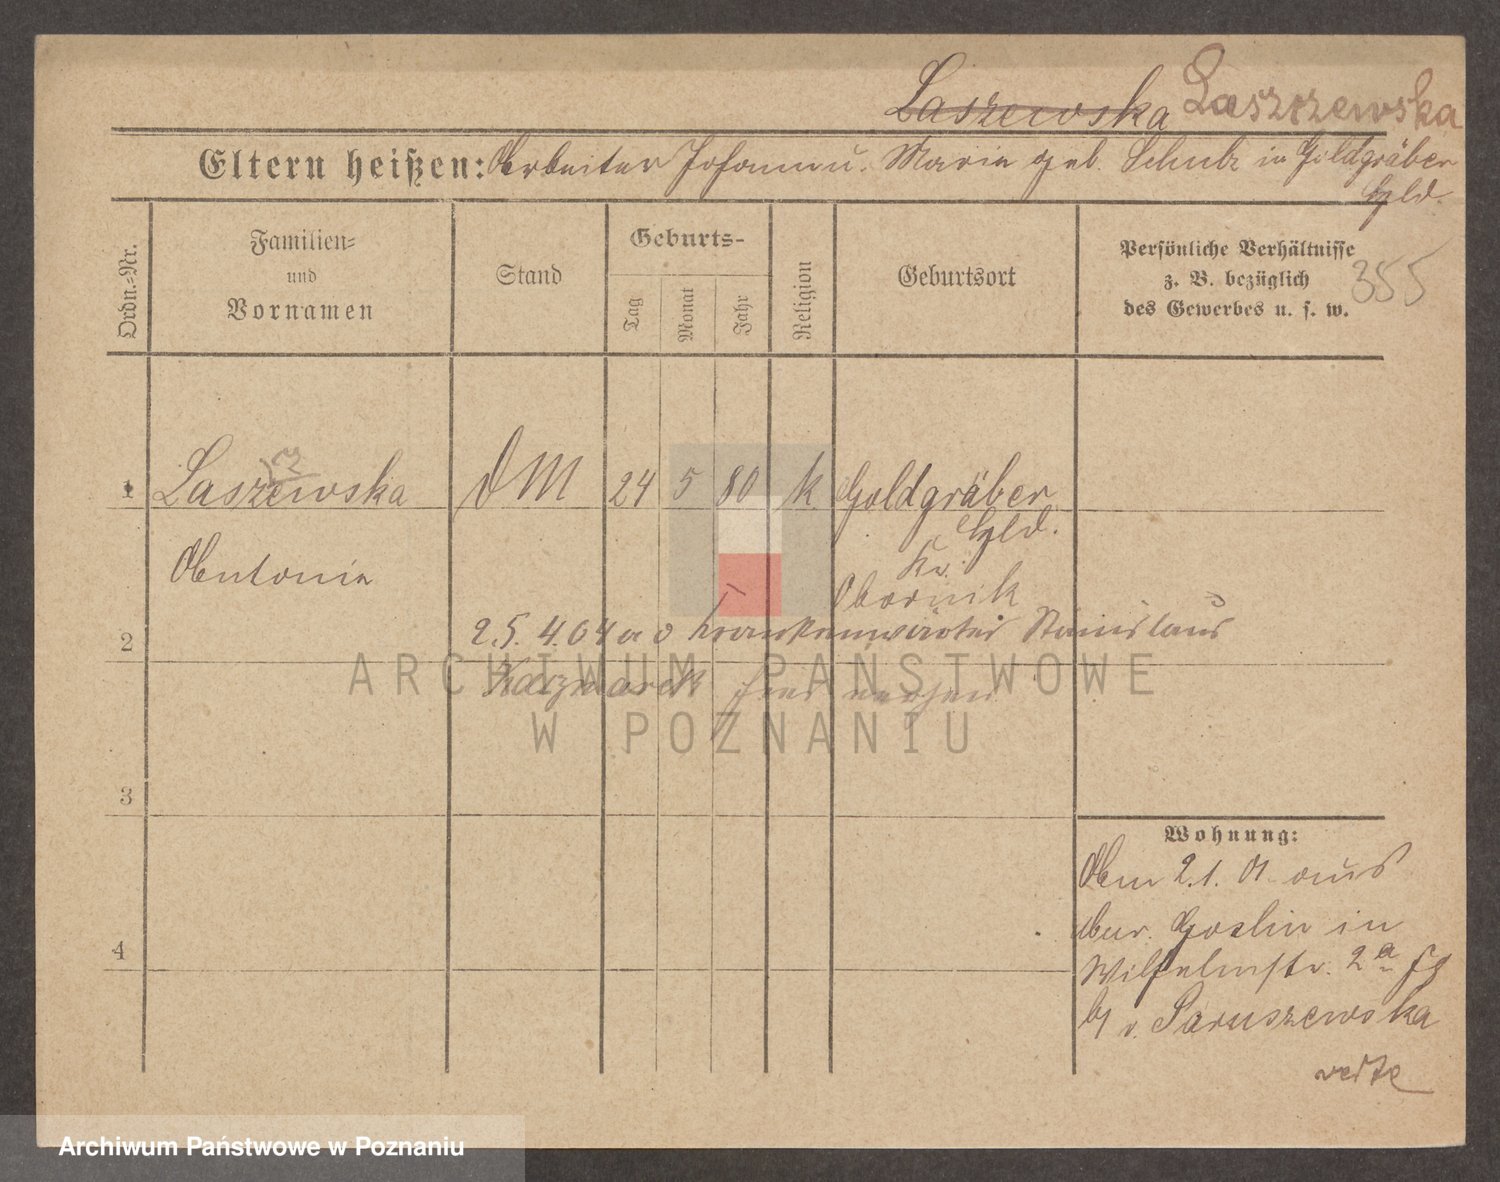 Laszewska Laszczewska
Eltern heißen: Arbeiter Johann u. Marie geb. Schulz in Goldgräber
Hld.
Ordn.-Nr.
Familien-
und
Vornamen
Stand
Geburts-
Tag
Monat
Jahr
Religion
Geburtsort
Persönliche Verhältnisse
z. B. bezüglich
des Gewerbes u. s. w.
355
cz
1 Laszewska DM 24 5 80 k. Goldgräber
Hld.
Antonie Kr.
Obornik
2 25.4.04 a d Krankenwärter Stanislaus
Kaczmarek
3
4
Wohnung:
Am 2.1.01 aus
Mur. Goslin in
Wilhelmstr. 2a
b v. Paruszewska
verte
ARCHIWUM PAŃSTWOWE
W POZNANIU
Archiwum Państwowe w Poznaniu